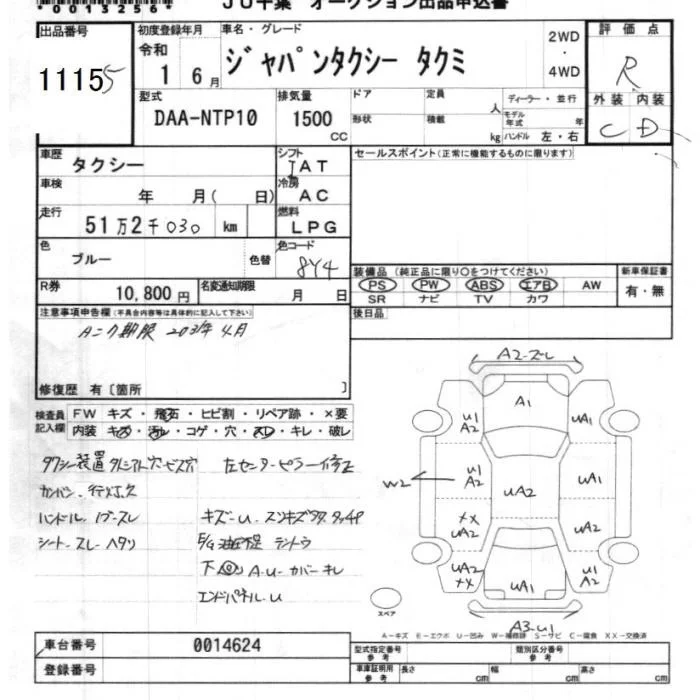 JU千葉 オークション出品申込書
出品番号
11155
初度登録年月
令和
1 6月
車名・グレード
ジャパンタクシー タクミ
2WD
・
4WD
評価点
R
外装 内装
C D
型式
DAA-NTP10
排気量
1500
CC
ドア
形状
定員
人
積載
kg
ディーラー・並行
モデル年式 年
ハンドル 左・右
車歴
タクシー
シフト
IAT
車検
年 月( 日)
冷房
AC
走行
51万2千030 km
燃料
LPG
色
ブルー
色替
色コード
8Y4
R券
10,800円
名変通知期限
月 日
セールスポイント(正常に機能するものに限ります)
装備品 (純正品に限り○をつけてください)
PS PW ABS エアB AW
SR ナビ TV カワ
新車保証書
有・無
後日品
注意事項申告欄(不具合内容等は具体的に記入して下さい)
タンク期限 2031年4月
修復歴 有〔箇所 〕
検査員記入欄
FW キズ・飛石・ヒビ割・リペア跡・×要
内装 キズ・汚れ・コゲ・穴・スレ・キレ・破レ
タクシー装置 穴・ビス穴 左センターピラー修正
カンバン・行灯欠
ハンドル スレ キズ-U・スリキズ タッチP
シート-スレ-ヘタリ
下 A-U-カバーキレ
エンドパネル-U
A2-ズレ
A1
U1
A2
UA1
U1
A2
UA1
W2
UA2
XX
UA2
UA2
UA2
XX
UA1
U1
A2
A3-U1
スペア
A-キズ E-エクボ U-凹み W-補修跡 S-サビ C-腐食 XX-交換済
車台番号
0014624
登録番号
型式指定番号
参考
類別区分番号
参考
車庫証明用
参考
長さ
cm
幅
cm
高さ
cm